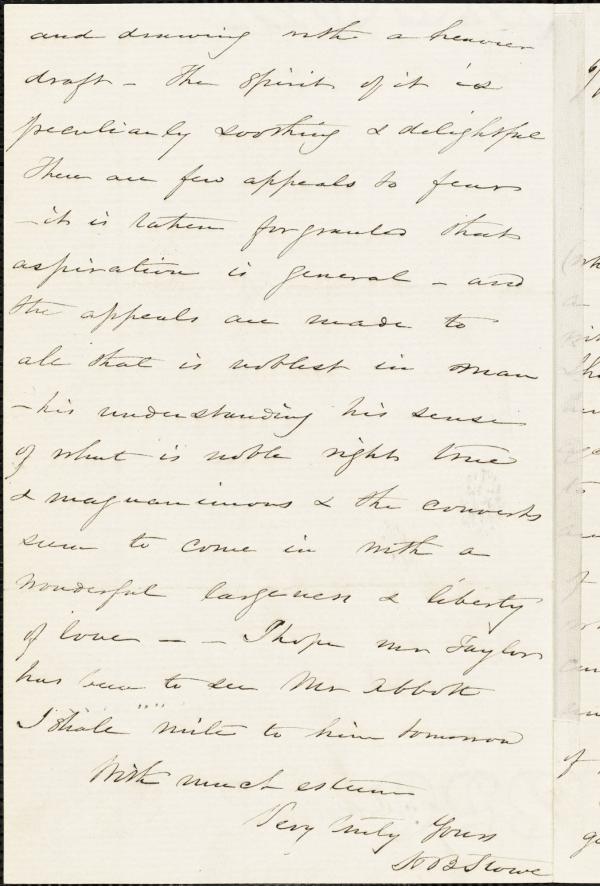 and drawing with a heavier
draft – The spirit of it is
peculiarly soothing & delightful
There are few appeals to fears
– it is taken for granted that
aspiration is general – and
the appeals are made to
all that is noblest in man
– his understanding his sense
of what is noble right true
& magnanimous & the converts
seem to come in with a
wonderful largeness & liberty
of love – – I hope Mr Taylor
has been to see Mr Abbott
I shall write to him tomorrow
With much esteem
Very truly Yours
H B Stowe